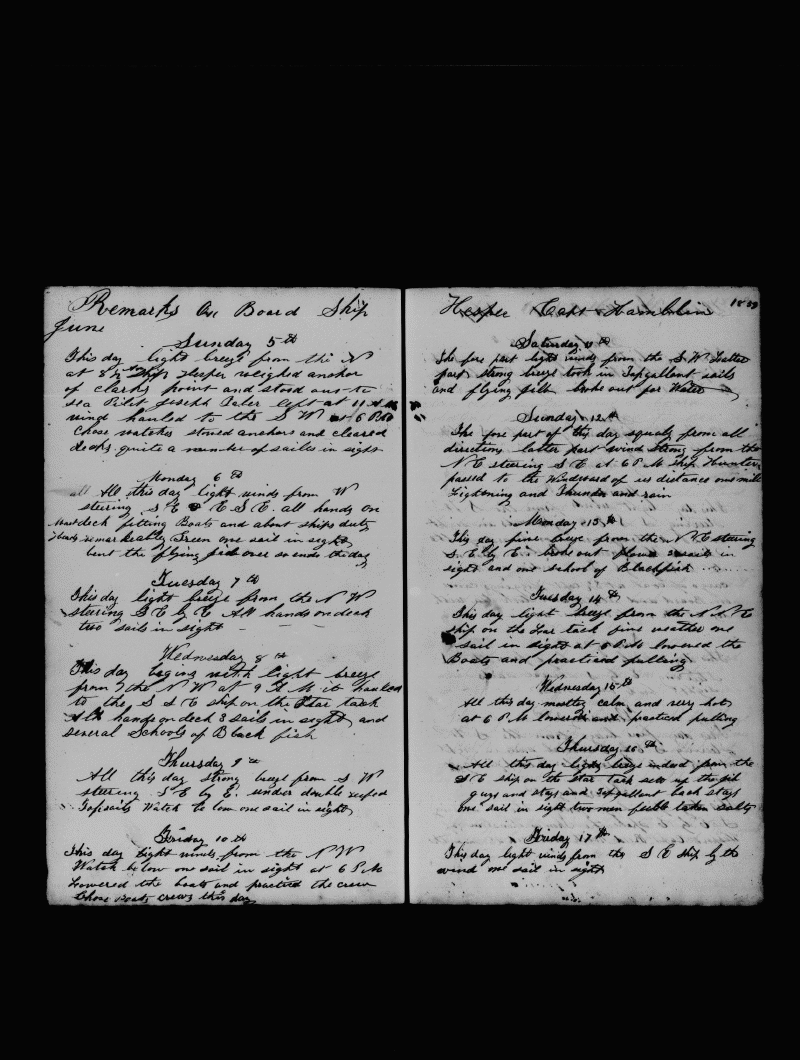 Remarks On Board Ship
June
Sunday 5th
This day light breeze from the N
at Ship Hesper weighed anchor
of clarks point and stood out to
sea Pilot Joseph Taber left at 11 A M
wind hauled to the S W at 6 P M
Chose watches stowed anchors and cleared
decks. quite a number of sailes in sight
Monday 6th
All this day light winds from W
steering S E & E S E. all hands on
deck fitting Boats and about ships duty
remarkably Green one sail in sight
bent the flying jib over so ends the day
Tuesday 7th
This day light breeze from the N W
steering S E by E All hands on deck
two sails in sight
Wednesday 8th
This day begins with light breeze
from the N W at 9 A M it hauled
to the S S E ship on the Star tack
All hands on deck 3 sails in sight and
several Schools of Black fish
Thursday 9th
All this day strong breeze from S W
steering S E by E. under double reefed
Topsails Watch be low one sail in sight
Friday 10th
This day Light winds from the N W
Watch below one sail in sight at 6 P M
Lowered the boats and practice the crew
Chose Boats crews this day
Hesper Capt Hamblin 1859
Saturday 11th
The fore part light winds from the S W Latter
part strong breeze took in Topgallant sails
and flying jibb broke out for Water
Sunday 12th
The fore part of this day squaly from all
directions latter part wind strong from the
N E steering S E at 6 P M ship Hunter
passed to the Windward of us distance one mile
Lightening and Thunder and rain
Monday 13th
This day fine breeze from the N E steering
S. E by E. broke out flower 2 sails in
sight and one school of Blackfish
Tuesday 14th
This day light breeze from the N N E
ship on the Lar tack fine weather one
sail in sight at 5 P M lowered the
Boats and practiced pulling
Wednesday 15th
All this day mostly calm and very hot
at 6 P.M lowered and practice pulling
Thursday 16th
All this day light breeze indeed from the
S E ship on the star tack sett up the jib
guys and stays and Topgallant back stays
one sail in sight two men
Friday 17th
This day light winds from the S E ship by the
wind one sail in sight